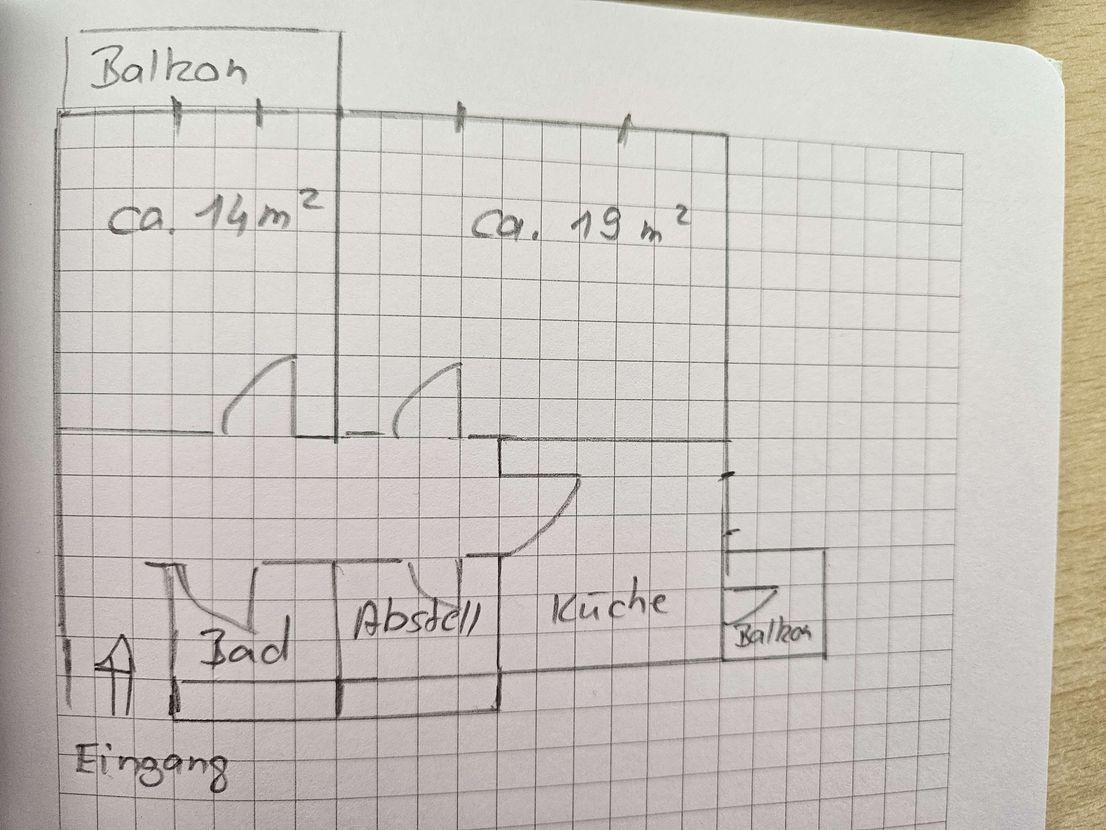 Balkon
ca. 14 m²
ca. 19 m²
Bad
Abstell
Küche
Balkon
Eingang